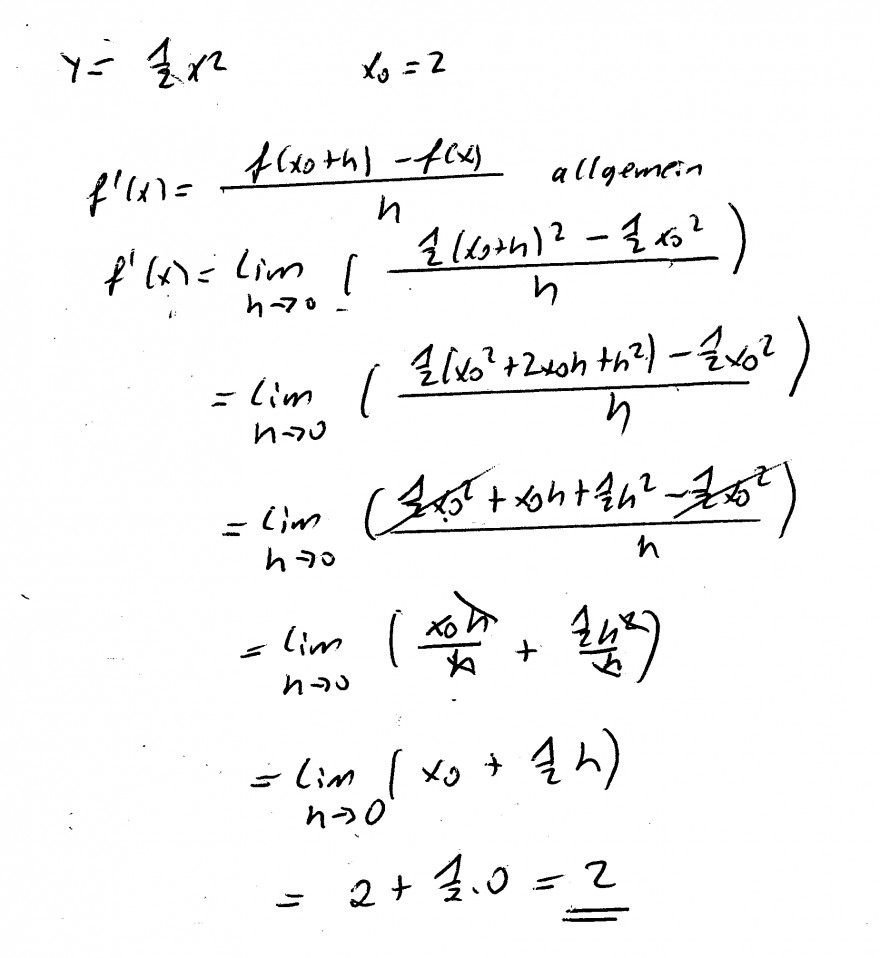 y = 1/2 x² x₀ = 2
f'(x) = (f(x₀+h) - f(x))/h allgemein
f'(x) = lim h→0 ( (1/2(x₀+h)² - 1/2 x₀²)/h )
= lim h→0 ( (1/2(x₀² + 2x₀h + h²) - 1/2 x₀²)/h )
= lim h→0 ( (1/2 x₀² + x₀h + 1/2 h² - 1/2 x₀²)/h )
= lim h→0 ( x₀h/h + 1/2 h²/h )
= lim h→0 ( x₀ + 1/2 h )
= 2 + 1/2 · 0 = 2